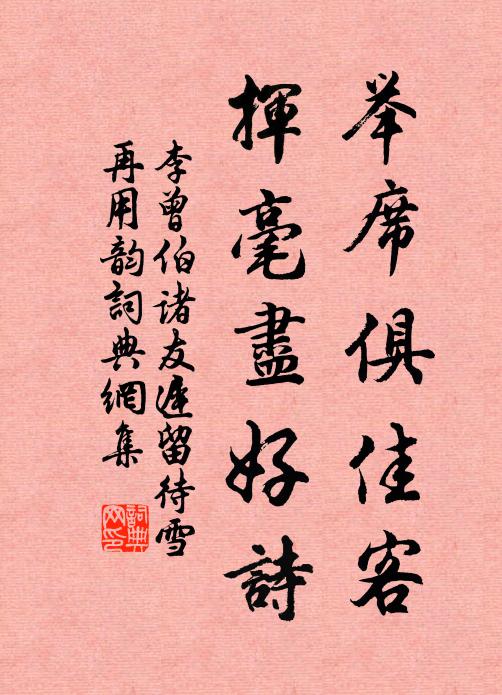 举席俱佳客
揮毫盡好詩
李曾伯诸友遲留待雪
再用韵詞典網集
詞典网印